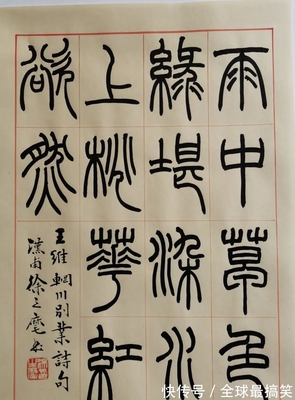 雨中草色
綠堪染水
上桃華紅
欲然
王維輞川別業詩句
南徐之
快传号 / 全球最搞笑